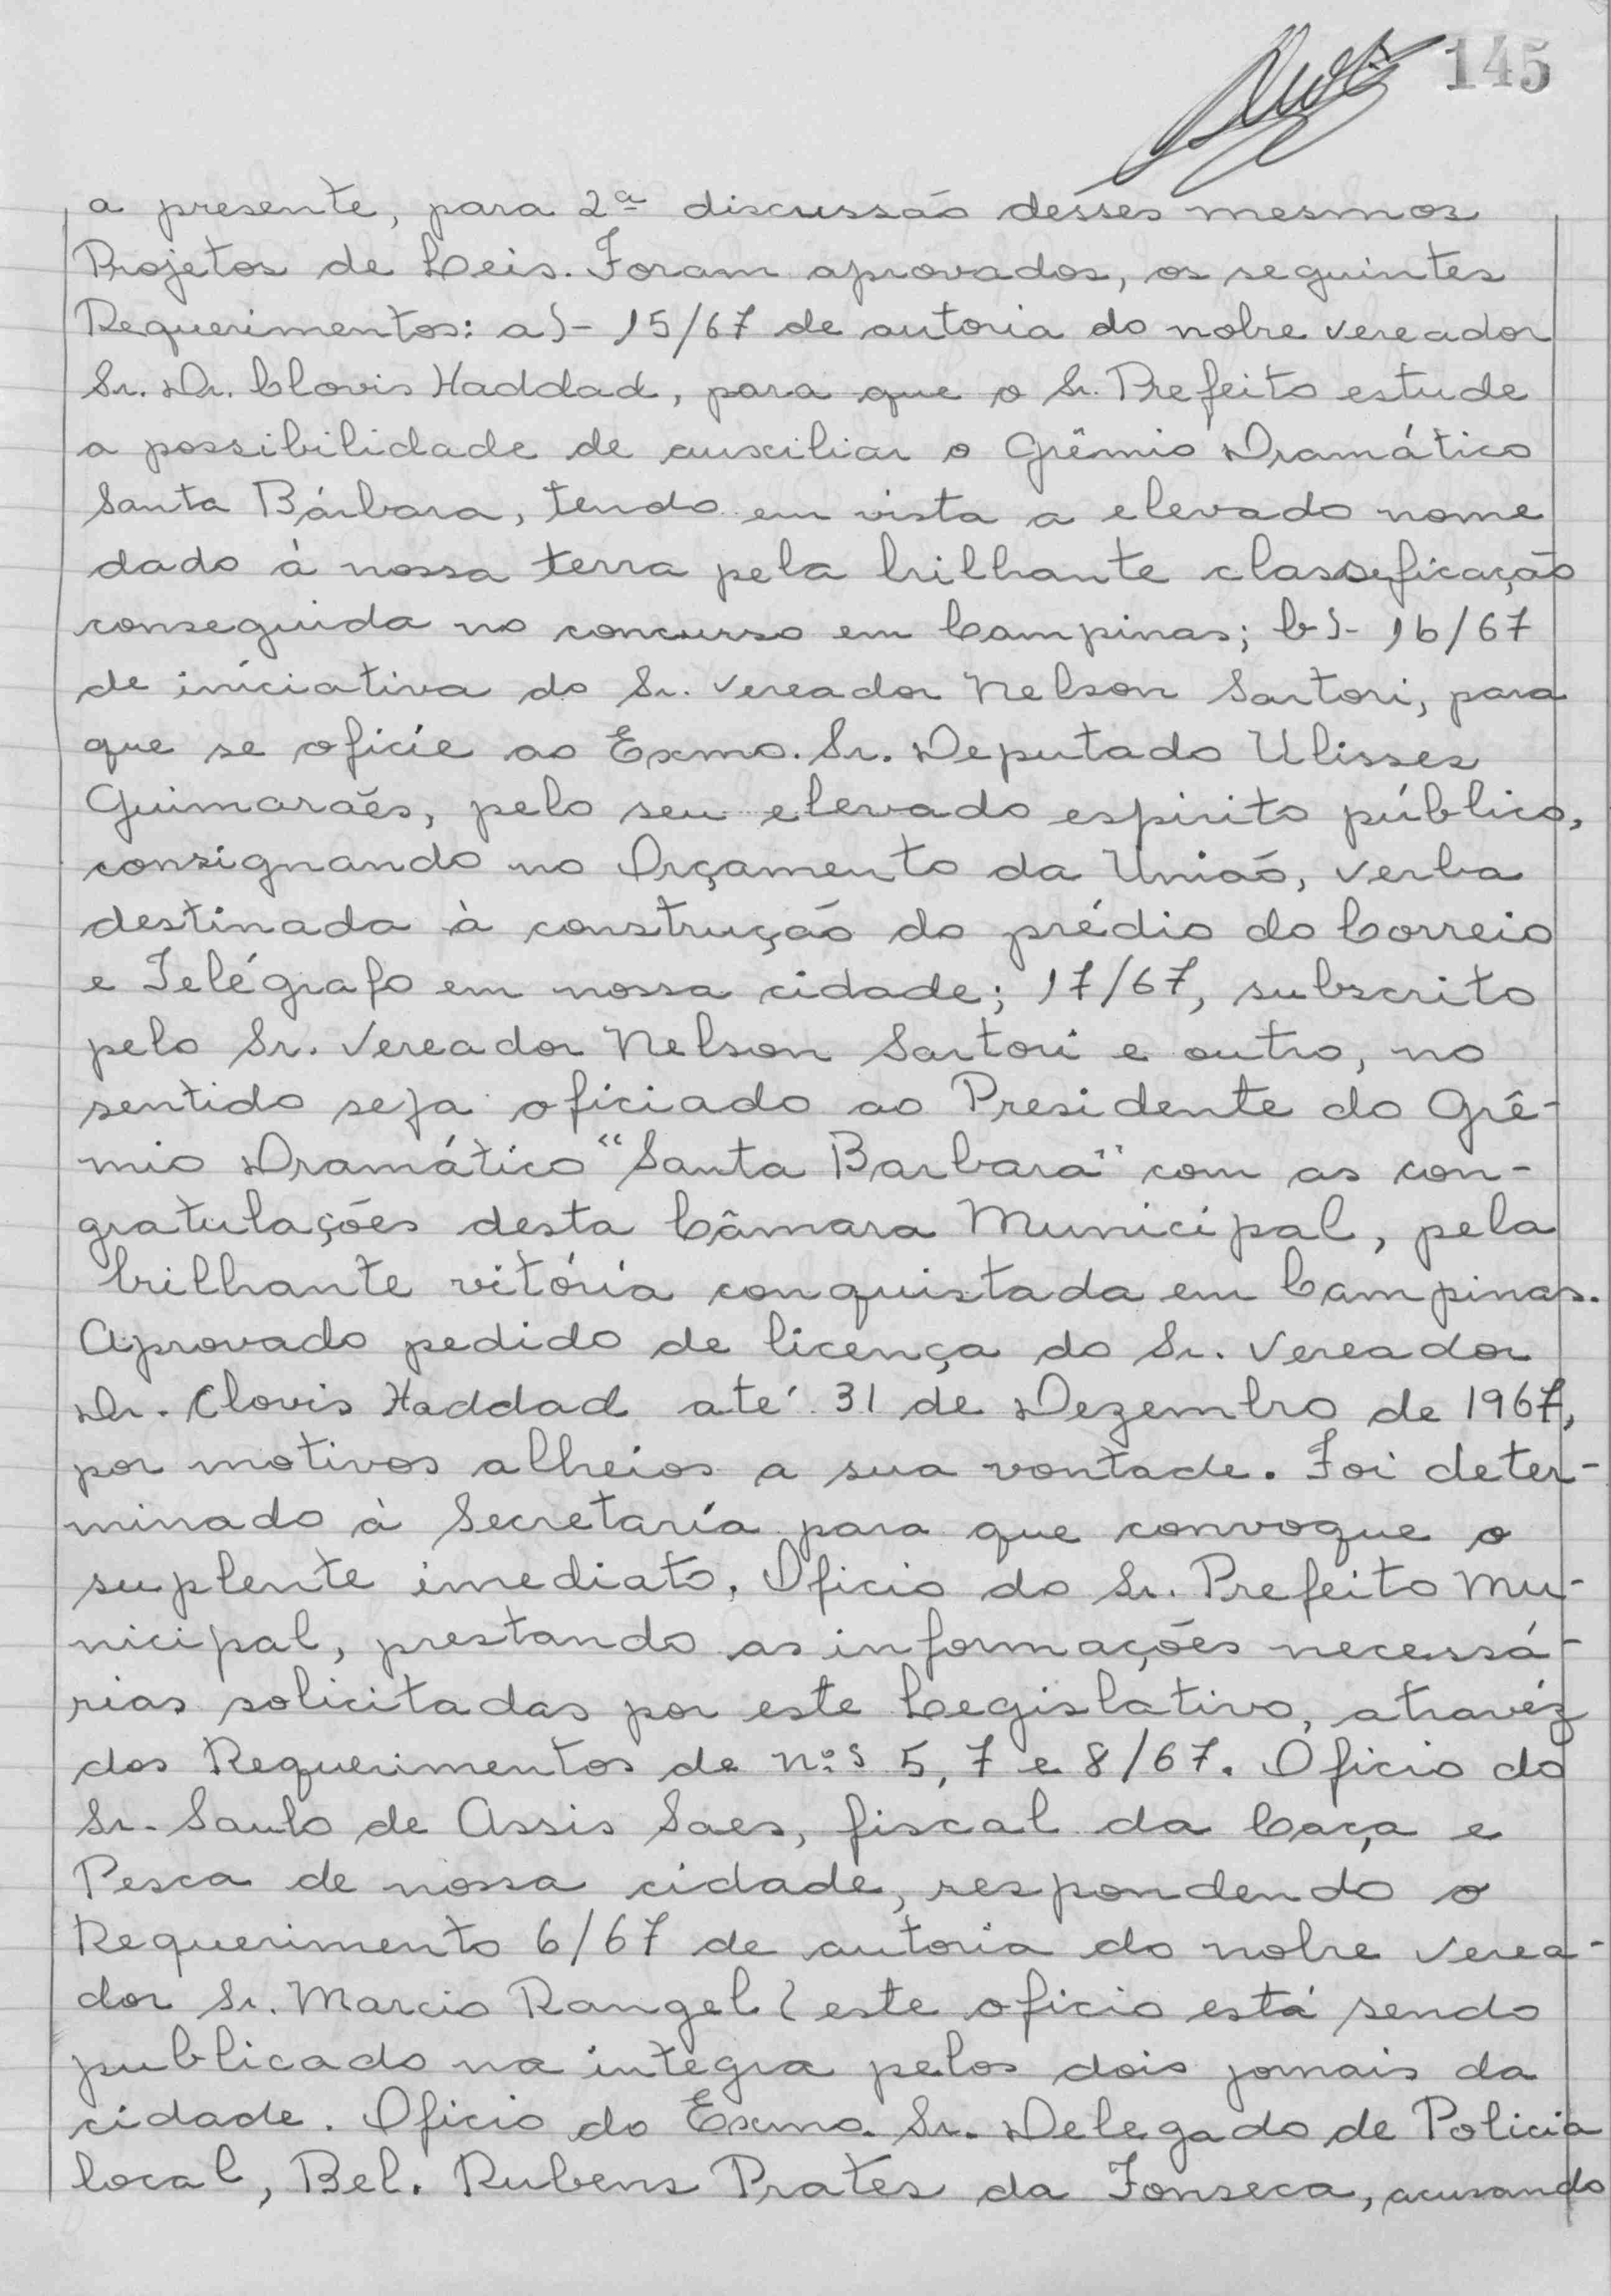 145
a presente, para 2ª discussão désses mesmos
Projetos de Leis. Foram aprovados, os seguintes
Requerimentos: a)- 15/67 de autoria do nobre vereador
Sr. Dr. Clovis Haddad, para que o Sr. Prefeito estude
a possibilidade de auxiliar o Grêmio Dramático
Santa Bárbara, tendo em vista a elevado nome
dado à nossa terra pela brilhante classeficação
conseguida no concurso em Campinas; b)- 16/67
de iniciativa do Sr. Vereador Nelson Sartori, para
que se oficie ao Exmo. Sr. Deputado Ulisses
Guimarães, pelo seu elevado espirito público,
consignando no Orçamento da União, verba
destinada à construção do prédio do Correio
e Telégrafo em nossa cidade; 17/67, subscrito
pelo Sr. Vereador Nelson Sartori e outro, no
sentido seja oficiado ao Presidente do Grê-
mio Dramático "Santa Barbara" com as con-
gratulações desta Câmara Municipal, pela
brilhante vitória conquistada em Campinas.
Aprovado pedido de licença do Sr. Vereador
Dr. Clovis Haddad até 31 de Dezembro de 1967,
por motivos alheios a sua vontade. Foi deter-
minado à Secretaría para que convoque o
suplente imediato. Oficio do Sr. Prefeito Mu-
nicipal, prestando as informações necessá-
rias solicitadas por este Legislativo, atravéz
dos Requerimentos de n.ºs 5, 7 e 8/67. Oficio do
Sr. Saulo de Assis Saes, fiscal da Caça e
Pesca de nossa cidade, respondendo o
Requerimento 6/67 de autoria do nobre verea-
dor Sr. Marcio Rangel (este oficio está sendo
publicado na integra pelos dois jornais da
cidade. Oficio do Exmo. Sr. Delegado de Policia
local, Bel. Rubens Prates da Fonseca, acusando